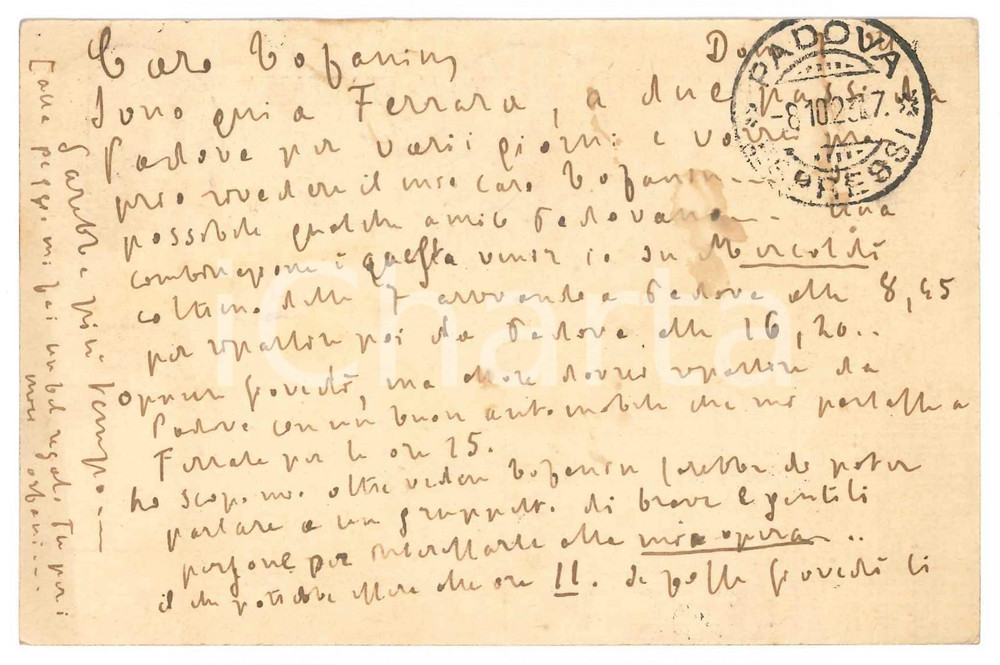 Caro Tofanin,
Sono qui a Ferrara, a due passi da
Padova per varii giorni e vorrei
rivedere il mio caro Tofanin...
possibile qualche amico Padovano... Una
combinazione è questa venir io su Mercoledì
coll'ultimo delle 7 arrivando a Padova alle 8,45
per ripartire poi da Padova alle 16,20..
Oppure Giovedì, ma allora dovrei ripartire da
Padova con un buon automobile che mi portasse a
Ferrara per le ore 15.
Lo scopo mio oltre veder Tofanin sarebbe di poter
parlare a un gruppetto di brave e gentili
persone per interessarle alla mia opera..
il che potrebbe essere alle ore 11. Se poi Giovedì ci
sarebbe più tempo...
peggio mi fai un bel regalo Tu pei
miei orfani...
PADOVA
-8.10.23.17.
ESPRESSI
iCharta